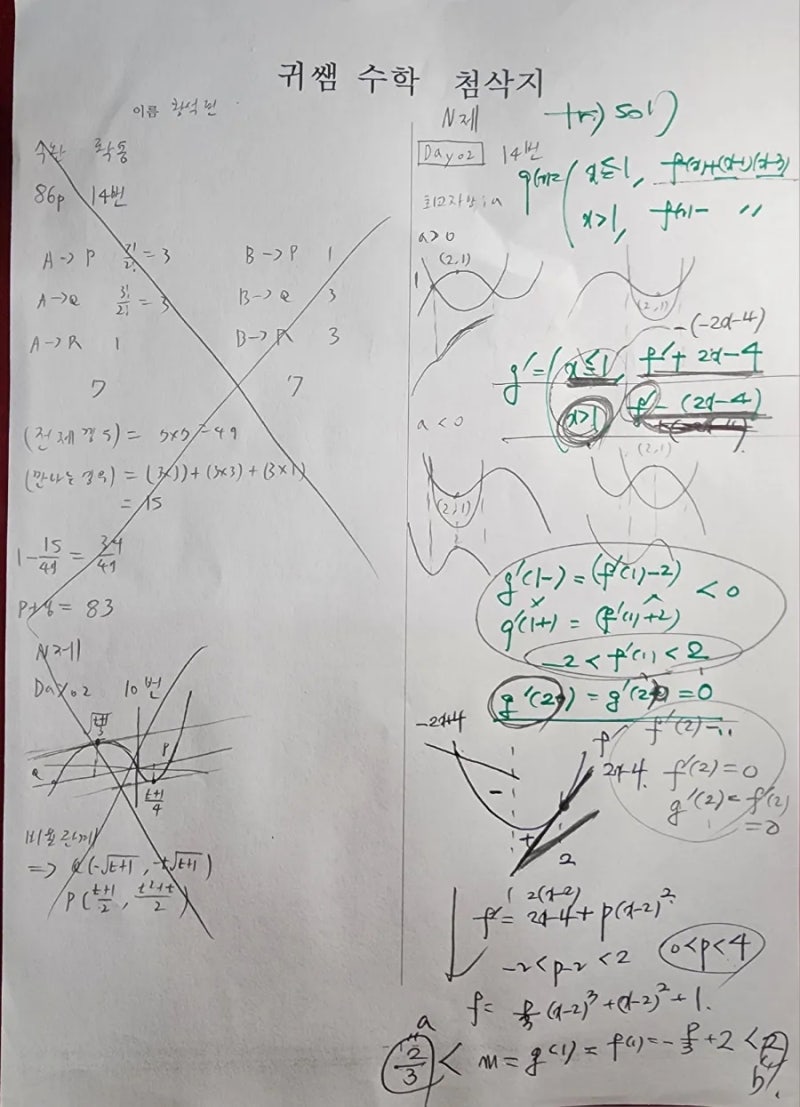 귀쌤 수학 첨삭지
이름
86p 14번
A→P 3!/2! = 3 B→P 1
A→Q 3!/2! = 3 B→Q 3
A→R 1 B→R 3
7 7
(전체 경우) = 7×7 = 49
(만나는 경우) = (3×1) + (3×3) + (3×1)
= 15
1 - 15/49 = 34/49
P+q = 83
N제
Day02 10번
P
Q
t+1/4
비율관계
=> Q(-√t+1, -t√t+1)
P(t+1/2, t²+t/2)
N제
tr) sol)
Day02 14번
g(x)= x≤1, f(x)+(x-1)(x-3)
x>1, f(x)- 〃
최고차항: a
a>0
(2,1)
1
(2,1)
-(-2x-4)
g'= x≤1, f'+2x-4
x>1 f'-(2x-4)
a<0
(2,1)
(2,1)
g'(1-) = (f'(1)-2)
× < 0
g'(1+) = (f'(1)+2)
-2 < f'(1) < 2
g'(2) = g'(2) = 0
-2x+4
f'
f'(2)
2x-4
f'(2)=0
g'(2)=f'(2)
=0
-
+
2
1 2(x-2)
f' = 2x-4+p(x-2)²
-2<p-2<2 0<p<4
f = p/3 (x-2)³+(x-2)²+1.
a
2/3 < m = g(1) = f(1) = -p/3 + 2 < 2
b